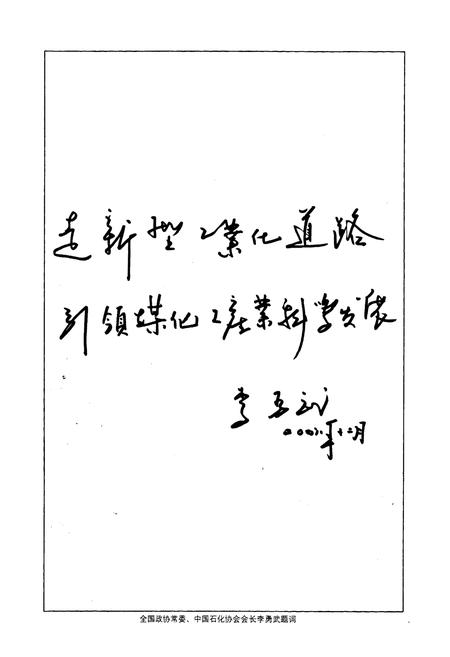 走新型工业化道路
引领煤化工产业科学发展
李勇武
二〇〇六年十二月
全国政协常委、中国石化协会会长李勇武题词